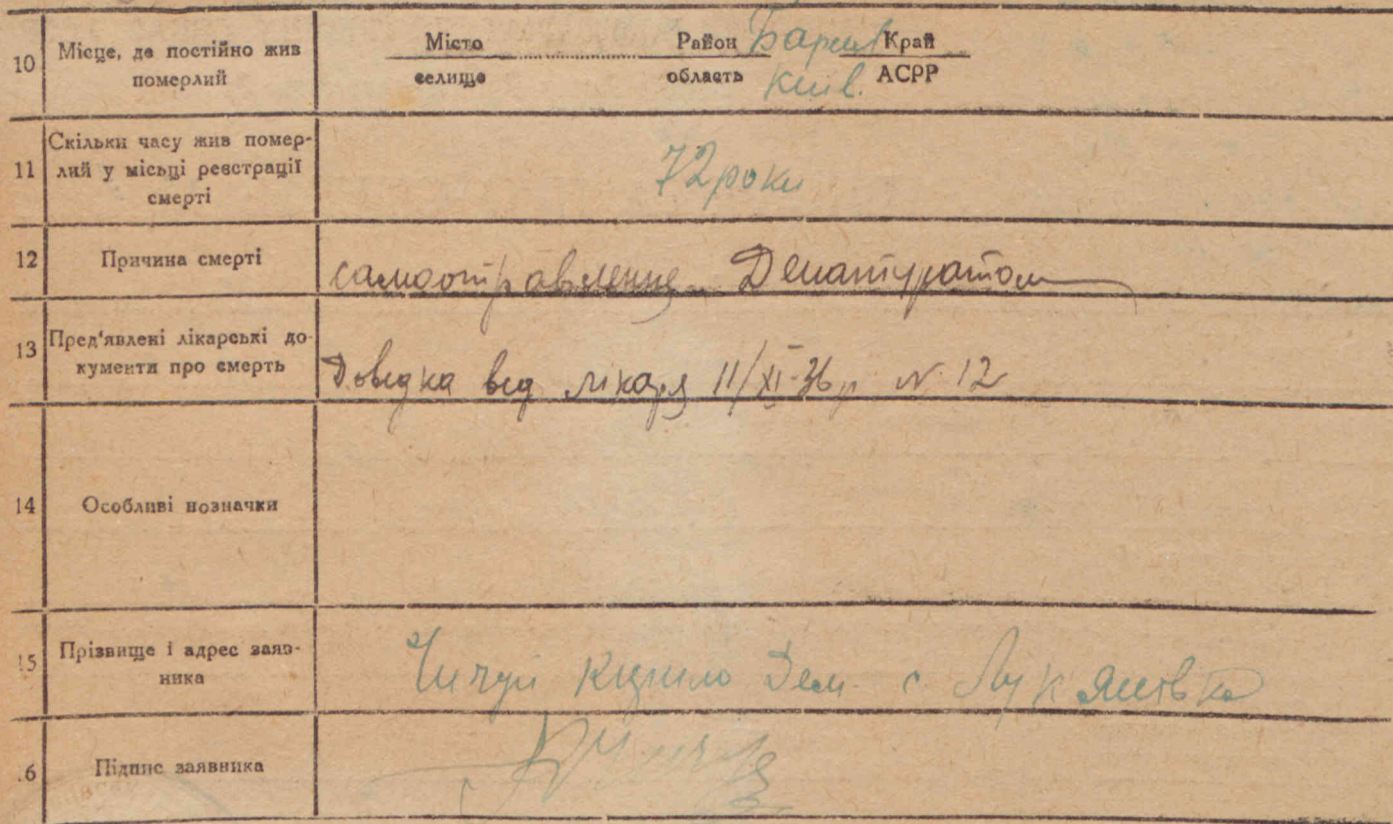 10 Місце, де постійно жив Місто Район Бариш Край
померлий селище область Київ. АСРР
Скільки часу жив помер-
11 лий у місьці реєстрації 72 роки
смерті
12 Причина смерті самоотравление Денатуратом
13 Пред'явлені лікарські до-
кументи про смерть Довідка від лікаря 11/XI-36 р N 12
14 Особливі позначки
15 Прізвище і адрес заяв-
ника Чичуй Кирило Дем. с Лукянівка
16 Підпис заявника